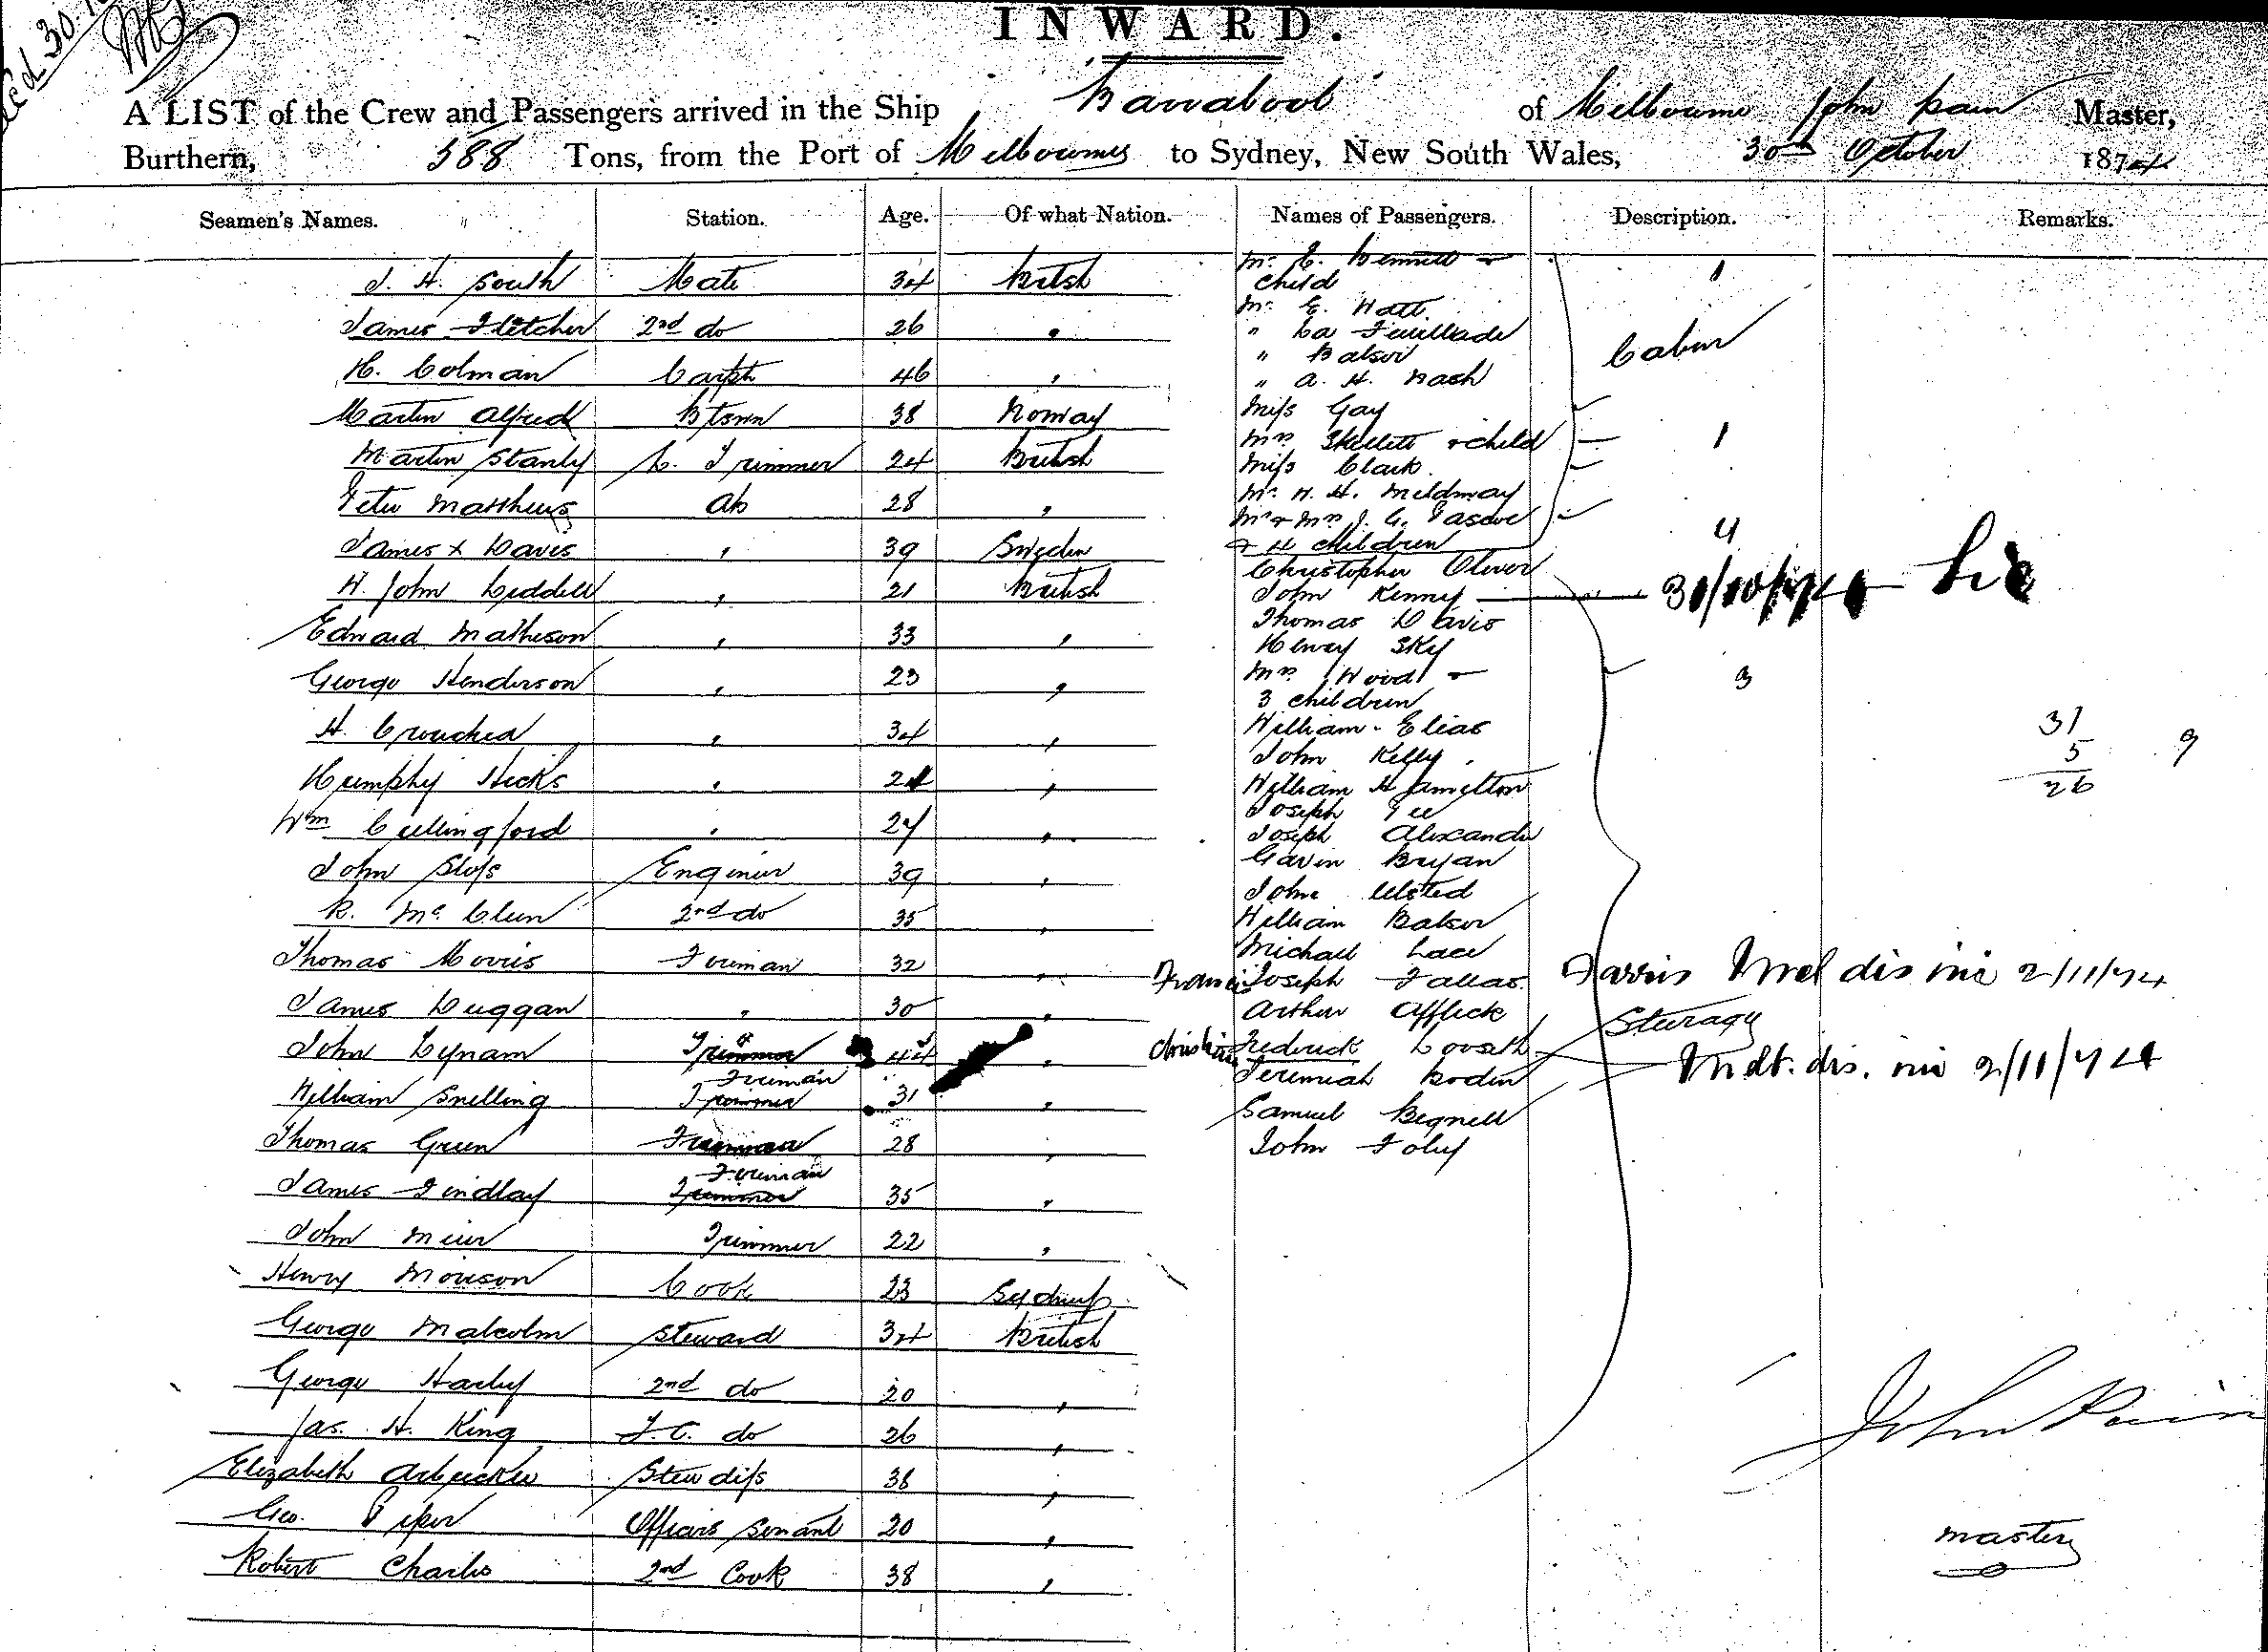 INWARD.
A LIST of the Crew and Passengers arrived in the Ship Barrabool of Melbourne John Master,
Burthern, 388 Tons, from the Port of Melbourne to Sydney, New South Wales, 30th October 1874
Seamen's Names. Station. Age. Of what Nation. Names of Passengers. Description. Remarks.
J. H. South Mate 34 British
James Fletcher 2nd do 26 "
H. Colman Carptr 46 "
Martin Alfred Btswn 38 Norway
Martin Stanly L. Trimmer 24 British
Peter Matthews Ab 28 "
James x Davis " 39 Sweden
W. John Liddell " 21 British
Edward Matheson " 33 "
George Henderson " 23 "
H. " 34 "
Humphy Hicks " 24 "
Wm Cullingford " 27 "
John Sloss Engineer 39 "
R. 2nd do 35 "
Thomas Morris Fireman 32 "
James Duggan " 30 "
John Lynam Trimmer 44 "
Fireman
William Snelling Trimmer 31 "
Thomas Green 28 "
Fireman
James Findlay Trimmer 35 "
John Trimmer 22 "
Henry Morison Cook 23 Sydney
George Malcolm Steward 34 British
George Harly 2nd do 20 "
Jas. H. King F.C. do 26 "
Elizabeth Arbuckle Stewdiss 38 "
Geo. Piper Officers Servant 20 "
Robert Charles 2nd Cook 38 "
Mr. E. Bennett &
child 1
Mr. E. Watt
" La Feuillade
" Balsor Cabin
" A. H. Nash
Miss Gay
Mrs Skellett & child 1
Miss Clark.
Mr. H. H. Mildmay
Mr & Mrs J. G. Pascoe
& 4 children 4
Christopher Oliver
John Kenny
Thomas Davis
Henry Sky
Mrs Wood &
3 children 3
William Elias
John Kelly
William Hamilton
Joseph
Joseph Alexander
Gavin Bryan
John Ulsted
William Balsor
Michael Lace
Francis Joseph Fallas Farris Mel dis 2/11/74
Arthur Affleck
Steerage
Christian Frederick Mdt. dis. 2/11/74
Jeremiah Bodin
Samuel Begnell
John Foley
31 9
5
26
John
master